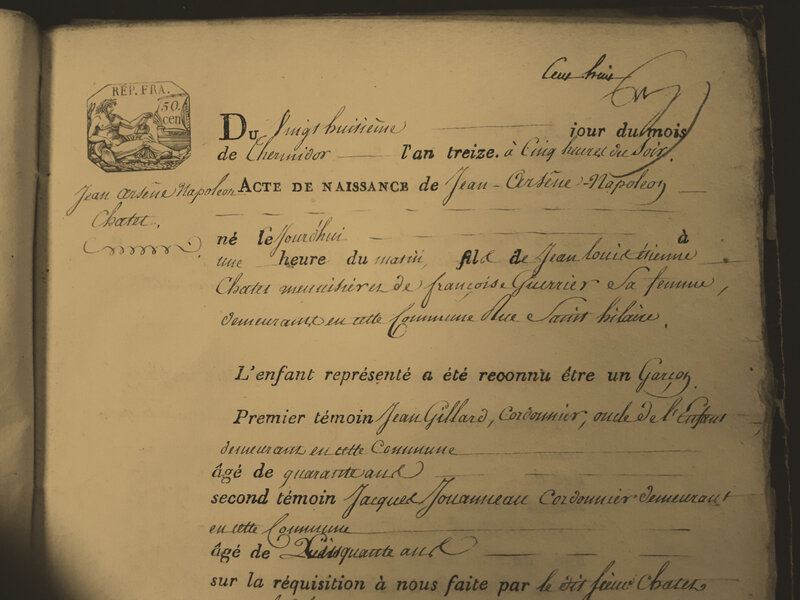 Cent huit
RÉP. FRA.
50.
cen
DU Vingt huitième jour du mois
de Thermidor l'an treize. à Cinq heures du Soir
Jean arsène Napoleon
Chatet.
ACTE DE NAISSANCE de Jean-Arsène-Napoleon
né le jourd'hui à
une heure du matin, fils de Jean Louis étienne
Chatet menuisier et de françoise Guerrier Sa femme,
demeurants en cette Commune Rue Saint hilaire.
L'enfant représenté a été reconnu être un Garçon
Premier témoin Jean Gillard, Cordonnier, oncle de l'Enfant
demeurant en cette Commune
âgé de quarante ans
second témoin Jacques Jouanneau Cordonnier demeurant
en cette Commune
âgé de Cinquante ans
sur la réquisition à nous faite par le dit sieur Chatet